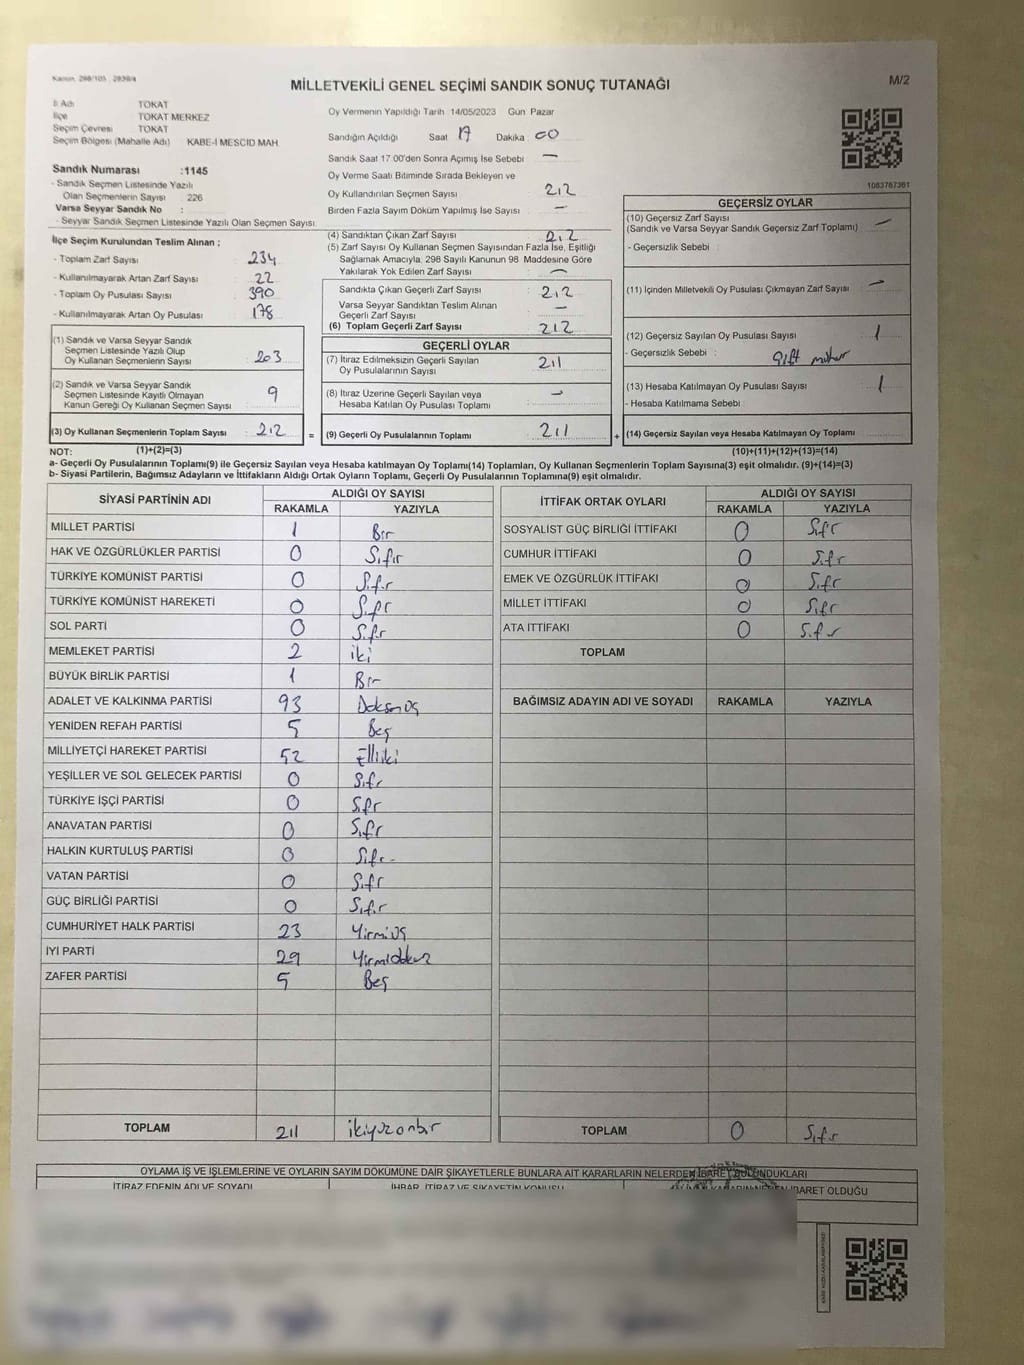 Kanun, 298/105 , 2839/4
MİLLETVEKİLİ GENEL SEÇİMİ SANDIK SONUÇ TUTANAĞI
M/2
İl Adı TOKAT
İlçe TOKAT MERKEZ
Seçim Çevresi TOKAT
Seçim Bölgesi (Mahalle Adı) KABE-İ MESCİD MAH.
Sandık Numarası :1145
- Sandık Seçmen Listesinde Yazılı
Olan Seçmenlerin Sayısı : 226
Varsa Seyyar Sandık No :
- Seyyar Sandık Seçmen Listesinde Yazılı Olan Seçmen Sayısı:
Oy Vermenin Yapıldığı Tarih 14/05/2023 Gün Pazar
Sandığın Açıldığı Saat 17 Dakika 00
Sandık Saat 17:00'den Sonra Açımış İse Sebebi —
Oy Verme Saati Bitiminde Sırada Bekleyen ve
Oy Kullandırılan Seçmen Sayısı 212
Birden Fazla Sayım Döküm Yapılmış İse Sayısı : —
1083767361
İlçe Seçim Kurulundan Teslim Alınan ;
- Toplam Zarf Sayısı : 234
- Kullanılmayarak Artan Zarf Sayısı : 22
- Toplam Oy Pusulası Sayısı : 390
- Kullanılmayarak Artan Oy Pusulası : 178
(1) Sandık ve Varsa Seyyar Sandık
Seçmen Listesinde Yazılı Olup
Oy Kullanan Seçmenlerin Sayısı : 203
(2) Sandık ve Varsa Seyyar Sandık
Seçmen Listesinde Kayıtlı Olmayan
Kanun Gereği Oy Kullanan Seçmen Sayısı : 9
(3) Oy Kullanan Seçmenlerin Toplam Sayısı : 212
(4) Sandıktan Çıkan Zarf Sayısı : 212
(5) Zarf Sayısı Oy Kullanan Seçmen Sayısından Fazla İse, Eşitliği
Sağlamak Amacıyla, 298 Sayılı Kanunun 98 Maddesine Göre
Yakılarak Yok Edilen Zarf Sayısı : —
Sandıkta Çıkan Geçerli Zarf Sayısı : 212
Varsa Seyyar Sandıktan Teslim Alınan
Geçerli Zarf Sayısı : —
(6) Toplam Geçerli Zarf Sayısı : 212
GEÇERLİ OYLAR
(7) İtiraz Edilmeksizin Geçerli Sayılan
Oy Pusulalarının Sayısı : 211
(8) İtiraz Üzerine Geçerli Sayılan veya
Hesaba Katılan Oy Pusulası Toplamı : —
= (9) Geçerli Oy Pusulalarının Toplamı : 211
GEÇERSİZ OYLAR
(10) Geçersiz Zarf Sayısı
(Sandık ve Varsa Seyyar Sandık Geçersiz Zarf Toplamı) : —
- Geçersizlik Sebebi :
(11) İçinden Milletvekili Oy Pusulası Çıkmayan Zarf Sayısı : —
(12) Geçersiz Sayılan Oy Pusulası Sayısı : 1
- Geçersizlik Sebebi : Çift mühür
(13) Hesaba Katılmayan Oy Pusulası Sayısı : 1
- Hesaba Katılmama Sebebi :
+ (14) Geçersiz Sayılan veya Hesaba Katılmayan Oy Toplamı :
NOT: (1)+(2)=(3) (10)+(11)+(12)+(13)=(14)
a- Geçerli Oy Pusulalarının Toplamı(9) ile Geçersiz Sayılan veya Hesaba katılmayan Oy Toplamı(14) Toplamları, Oy Kullanan Seçmenlerin Toplam Sayısına(3) eşit olmalıdır. (9)+(14)=(3)
b- Siyasi Partilerin, Bağımsız Adayların ve İttifakların Aldığı Ortak Oyların Toplamı, Geçerli Oy Pusulalarının Toplamına(9) eşit olmalıdır.
SİYASİ PARTİNİN ADI ALDIĞI OY SAYISI
RAKAMLA YAZIYLA
MİLLET PARTİSİ 1 Bir
HAK VE ÖZGÜRLÜKLER PARTİSİ 0 Sıfır
TÜRKİYE KOMÜNİST PARTİSİ 0 Sıfır
TÜRKİYE KOMÜNİST HAREKETİ 0 Sıfır
SOL PARTİ 0 Sıfır
MEMLEKET PARTİSİ 2 iki
BÜYÜK BİRLİK PARTİSİ 1 Bir
ADALET VE KALKINMA PARTİSİ 93 Doksanüç
YENİDEN REFAH PARTİSİ 5 Beş
MİLLİYETÇİ HAREKET PARTİSİ 52 Elliiki
YEŞİLLER VE SOL GELECEK PARTİSİ 0 Sıfır
TÜRKİYE İŞÇİ PARTİSİ 0 Sıfır
ANAVATAN PARTİSİ 0 Sıfır
HALKIN KURTULUŞ PARTİSİ 0 Sıfır
VATAN PARTİSİ 0 Sıfır
GÜÇ BİRLİĞİ PARTİSİ 0 Sıfır
CUMHURİYET HALK PARTİSİ 23 Yirmiüç
İYİ PARTİ 29 Yirmidokuz
ZAFER PARTİSİ 5 Beş
TOPLAM 211 ikiyüzonbir
İTTİFAK ORTAK OYLARI ALDIĞI OY SAYISI
RAKAMLA YAZIYLA
SOSYALİST GÜÇ BİRLİĞİ İTTİFAKI 0 Sıfır
CUMHUR İTTİFAKI 0 Sıfır
EMEK VE ÖZGÜRLÜK İTTİFAKI 0 Sıfır
MİLLET İTTİFAKI 0 Sıfır
ATA İTTİFAKI 0 Sıfır
TOPLAM
BAĞIMSIZ ADAYIN ADI VE SOYADI RAKAMLA YAZIYLA
TOPLAM 0 Sıfır
OYLAMA İŞ VE İŞLEMLERİNE VE OYLARIN SAYIM DÖKÜMÜNE DAİR ŞİKAYETLERLE BUNLARA AİT KARARLARIN NELERDEN İBARET BULUNDUKLARI
İTİRAZ EDENİN ADI VE SOYADI İHBAR, İTİRAZ VE ŞİKAYETİN KONUSU İBARET OLDUĞU